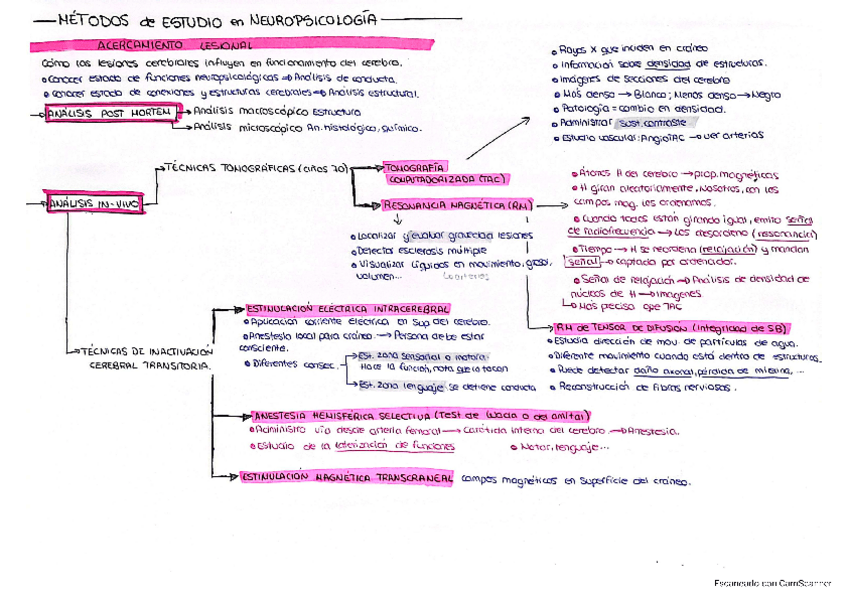 MÉTODOS de ESTUDIO en NEUROPSICOLOGÍA
ACERCAMIENTO LESIONAL
Cómo las lesiones cerebrales influyen en funcionamiento del cerebro.
• Conocer estado de funciones neuropsicológicas → Análisis de conducta.
• Conocer estado de conexiones y estructuras cerebrales → Análisis estructural.
ANÁLISIS POST MORTEM → Análisis macroscópico Estructura
→ Análisis microscópico An. histológico, químico.
ANÁLISIS IN-VIVO
TÉCNICAS TOMOGRÁFICAS (años 70)
TOMOGRAFÍA
COMPUTADORIZADA (TAC)
• Rayos X que inciden en cráneo
• Información sobre densidad de estructuras.
• Imágenes de secciones del cerebro
• Más denso → Blanco; Menos denso → Negro
• Patología = cambio en densidad.
• Administrar sust. contraste
• Estudio vascular: AngioTAC → ver arterias
RESONANCIA MAGNÉTICA (RM)
• Localizar y evaluar gravedad lesiones
• Detectar esclerosis múltiple
• Visualizar líquidos en movimiento, grosor,
volumen...
• Átomos H del cerebro → prop. magnéticas
• H giran aleatoriamente. Nosotros, con los
campos mag. los ordenamos.
• Cuando todos están girando igual, emito señal
de radiofrecuencia → Los desordeno (resonancia)
• Tiempo → H se reordena (relajación) y mandan
señal → captada por ordenador.
• Señal de relajación → Análisis de densidad de
núcleos de H → Imágenes
Más preciso que TAC
RM de TENSOR DE DIFUSIÓN (Integridad de SB)
• Estudia dirección de mov. de partículas de agua.
• Diferente movimiento cuando está dentro de estructuras.
• Puede detectar daño axonal, pérdida de mielina, ...
• Reconstrucción de fibras nerviosas.
TÉCNICAS DE INACTIVACIÓN
CEREBRAL TRANSITORIA.
ESTIMULACIÓN ELÉCTRICA INTRACEREBRAL
• Aplicación corriente eléctrica en sup. del cerebro.
• Anestesia local para cráneo. → Persona debe estar
consciente.
• Diferentes consec.
Est. zona sensorial o motora
Hace la función, nota que lo tocan
Est. zona lenguaje Se detiene conducta
ANESTESIA HEMISFÉRICA SELECTIVA (Test de Wada o del amital)
• Administro vía desde arteria femoral → Carótida interna del cerebro → Anestesia.
• Estudio de la lateralización de funciones
• Motor, lenguaje...
ESTIMULACIÓN MAGNÉTICA TRANSCRANEAL campos magnéticos en superficie del cráneo.
Escaneado con CamScanner